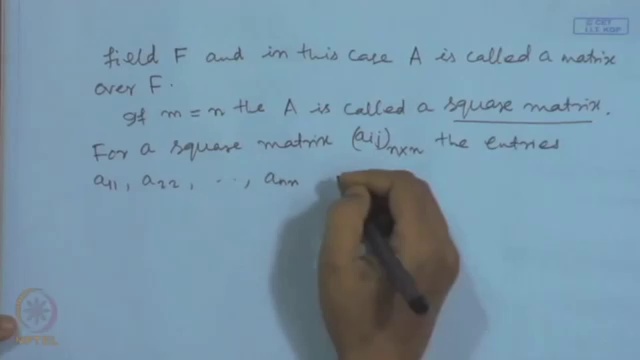 © CET
I.I.T. KGP
field F and in this case A is called a matrix
over F.
If m = n the A is called a square matrix.
For a square matrix (aij)n×n the entries
a11, a22, ..., ann
NPTEL